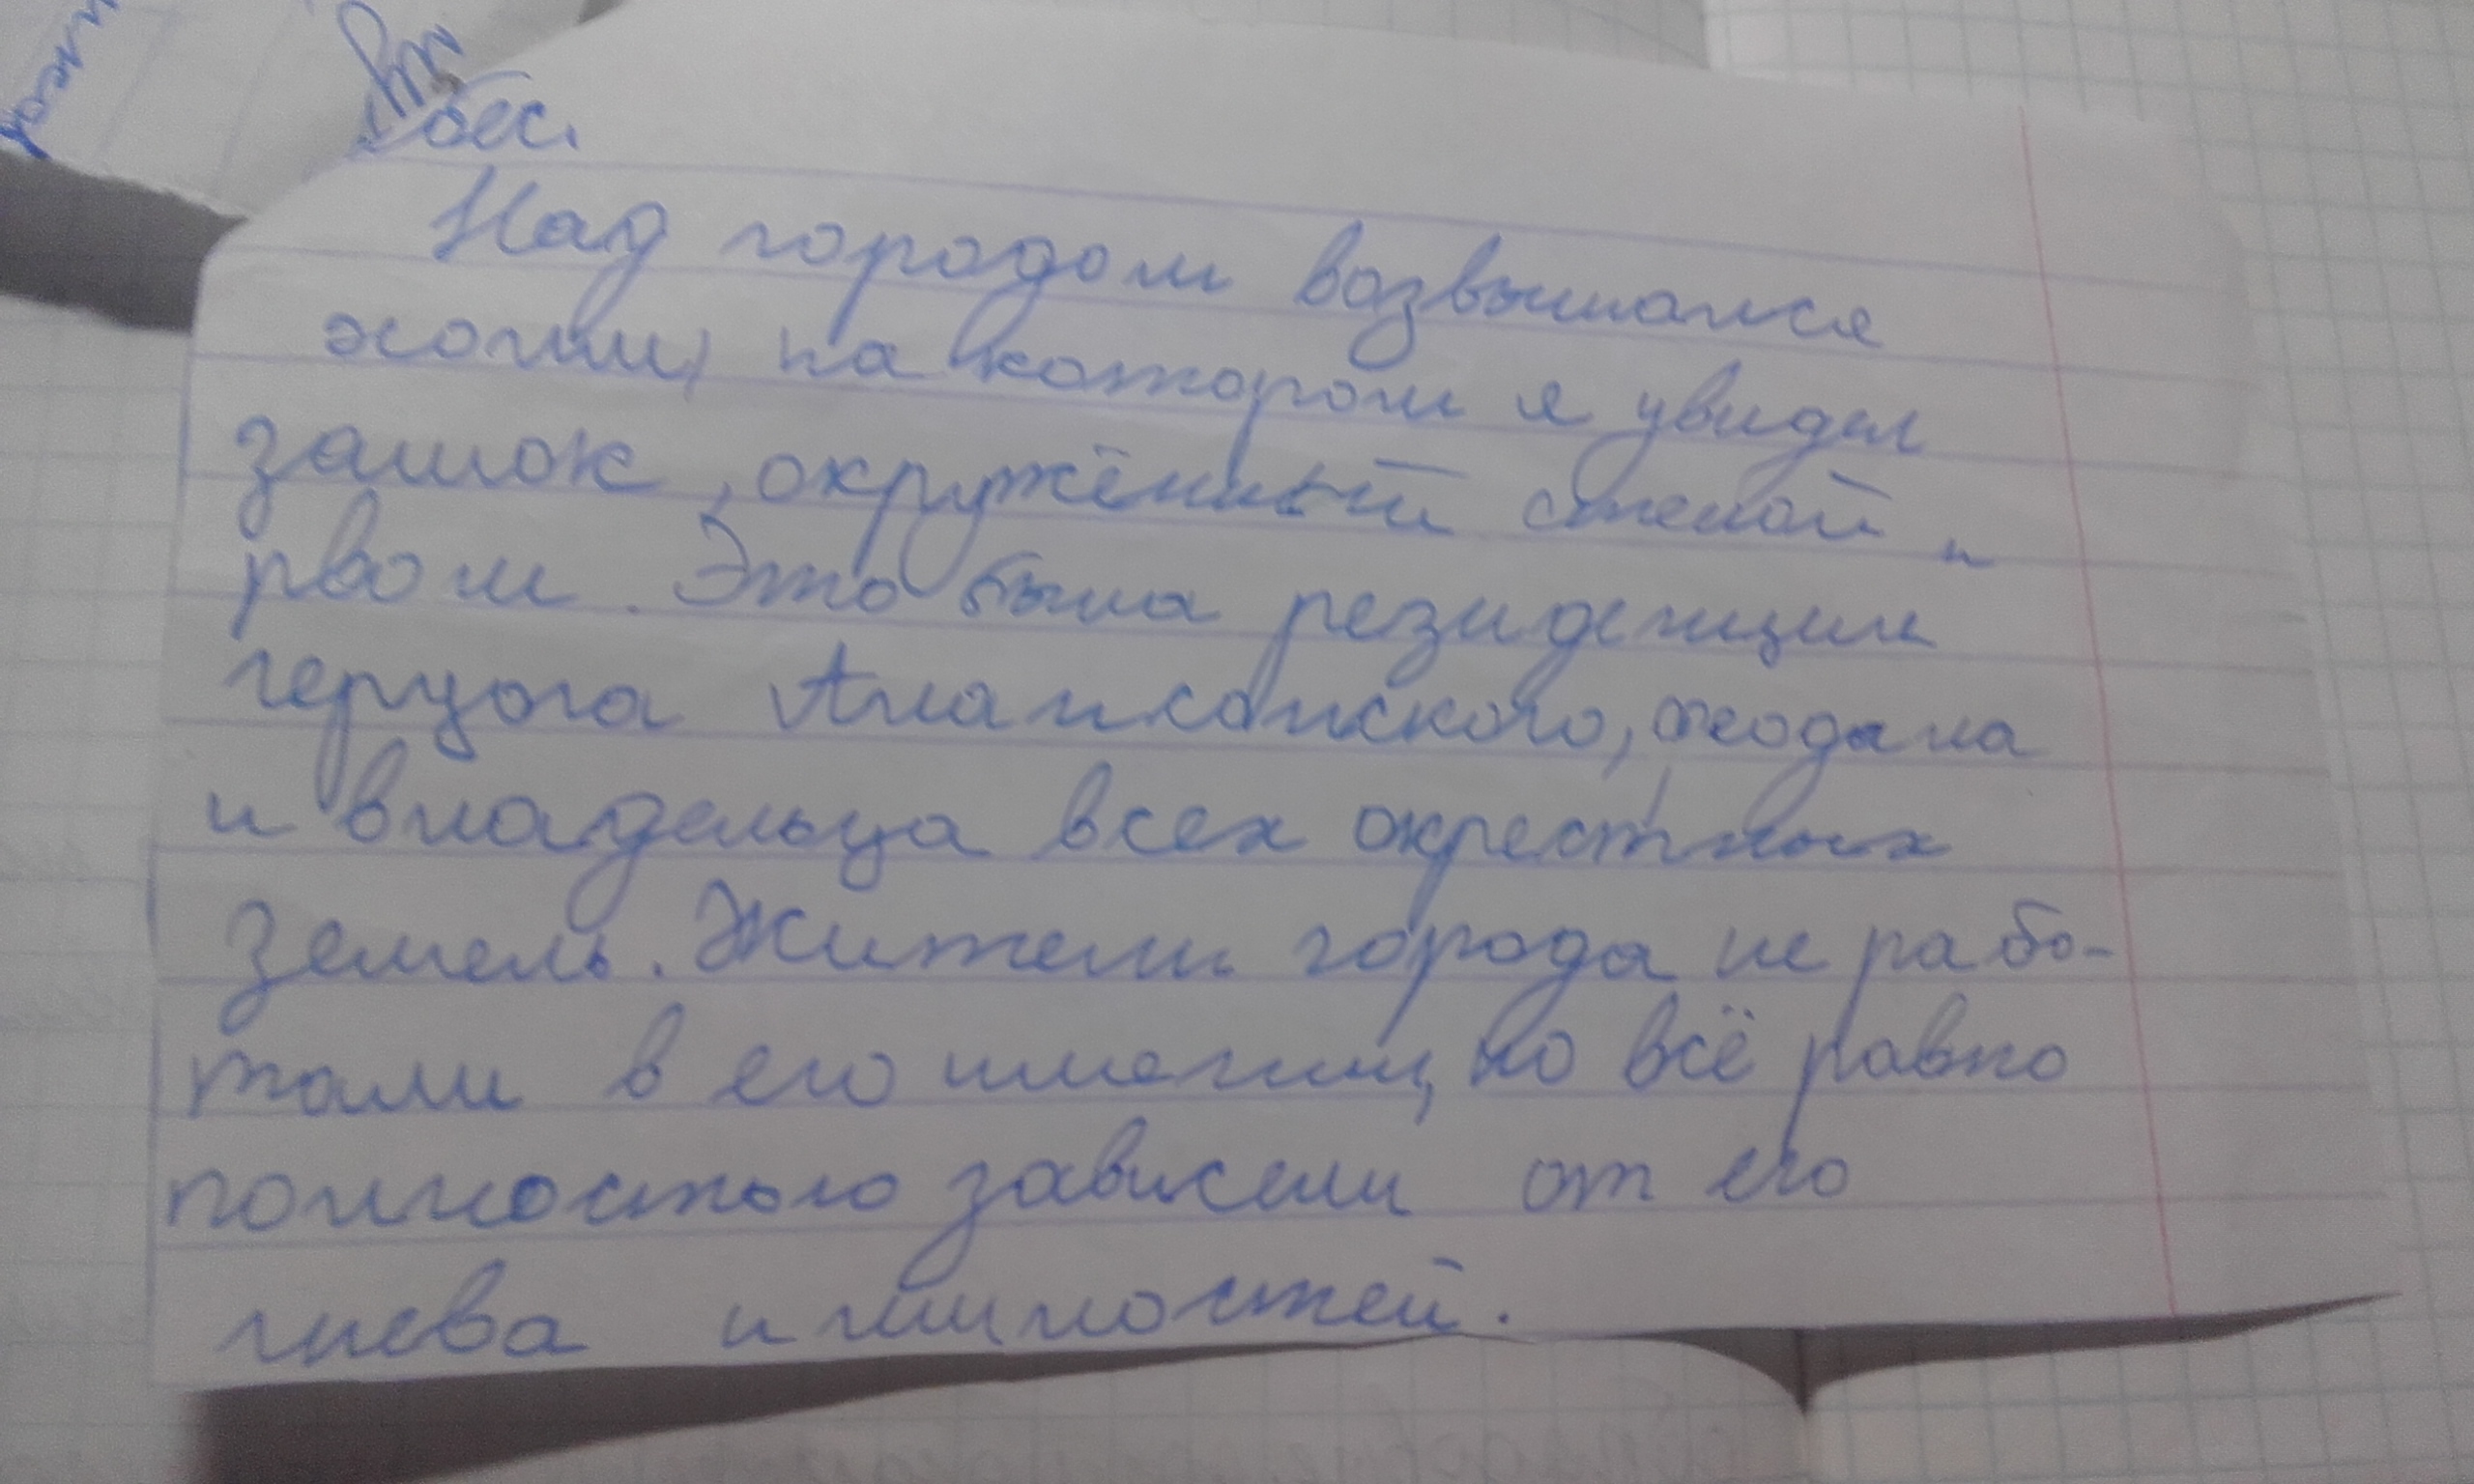 бес.
Над городом возвышался
холм, на котором я увидел
замок, окружённый стеной и
рвом. Это была резиденция
герцога Алансонского, феодала
и владельца всех окрестных
земель. Жители города не рабо-
тали в его имении, но всё равно
полностью зависели от его
гнева и милостей.